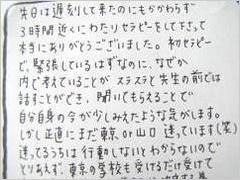 先日は遅刻して来たのにもかかわらず
3時間近くにわたりセラピーをして下さって
本当にありがとうございました。初セラピー
で、緊張しているはずなのに、なぜか
内で考えていることが スラスラと先生の前では
話すことができ、聞いてもらえることで
自分自身の今が少しみえたような気がします。
しかし正直にまだ東京 or 山口 迷っています(笑)
迷ってるうちは行動しないとわからないので
とりあえず、東京の学校も受けるだけ受けて